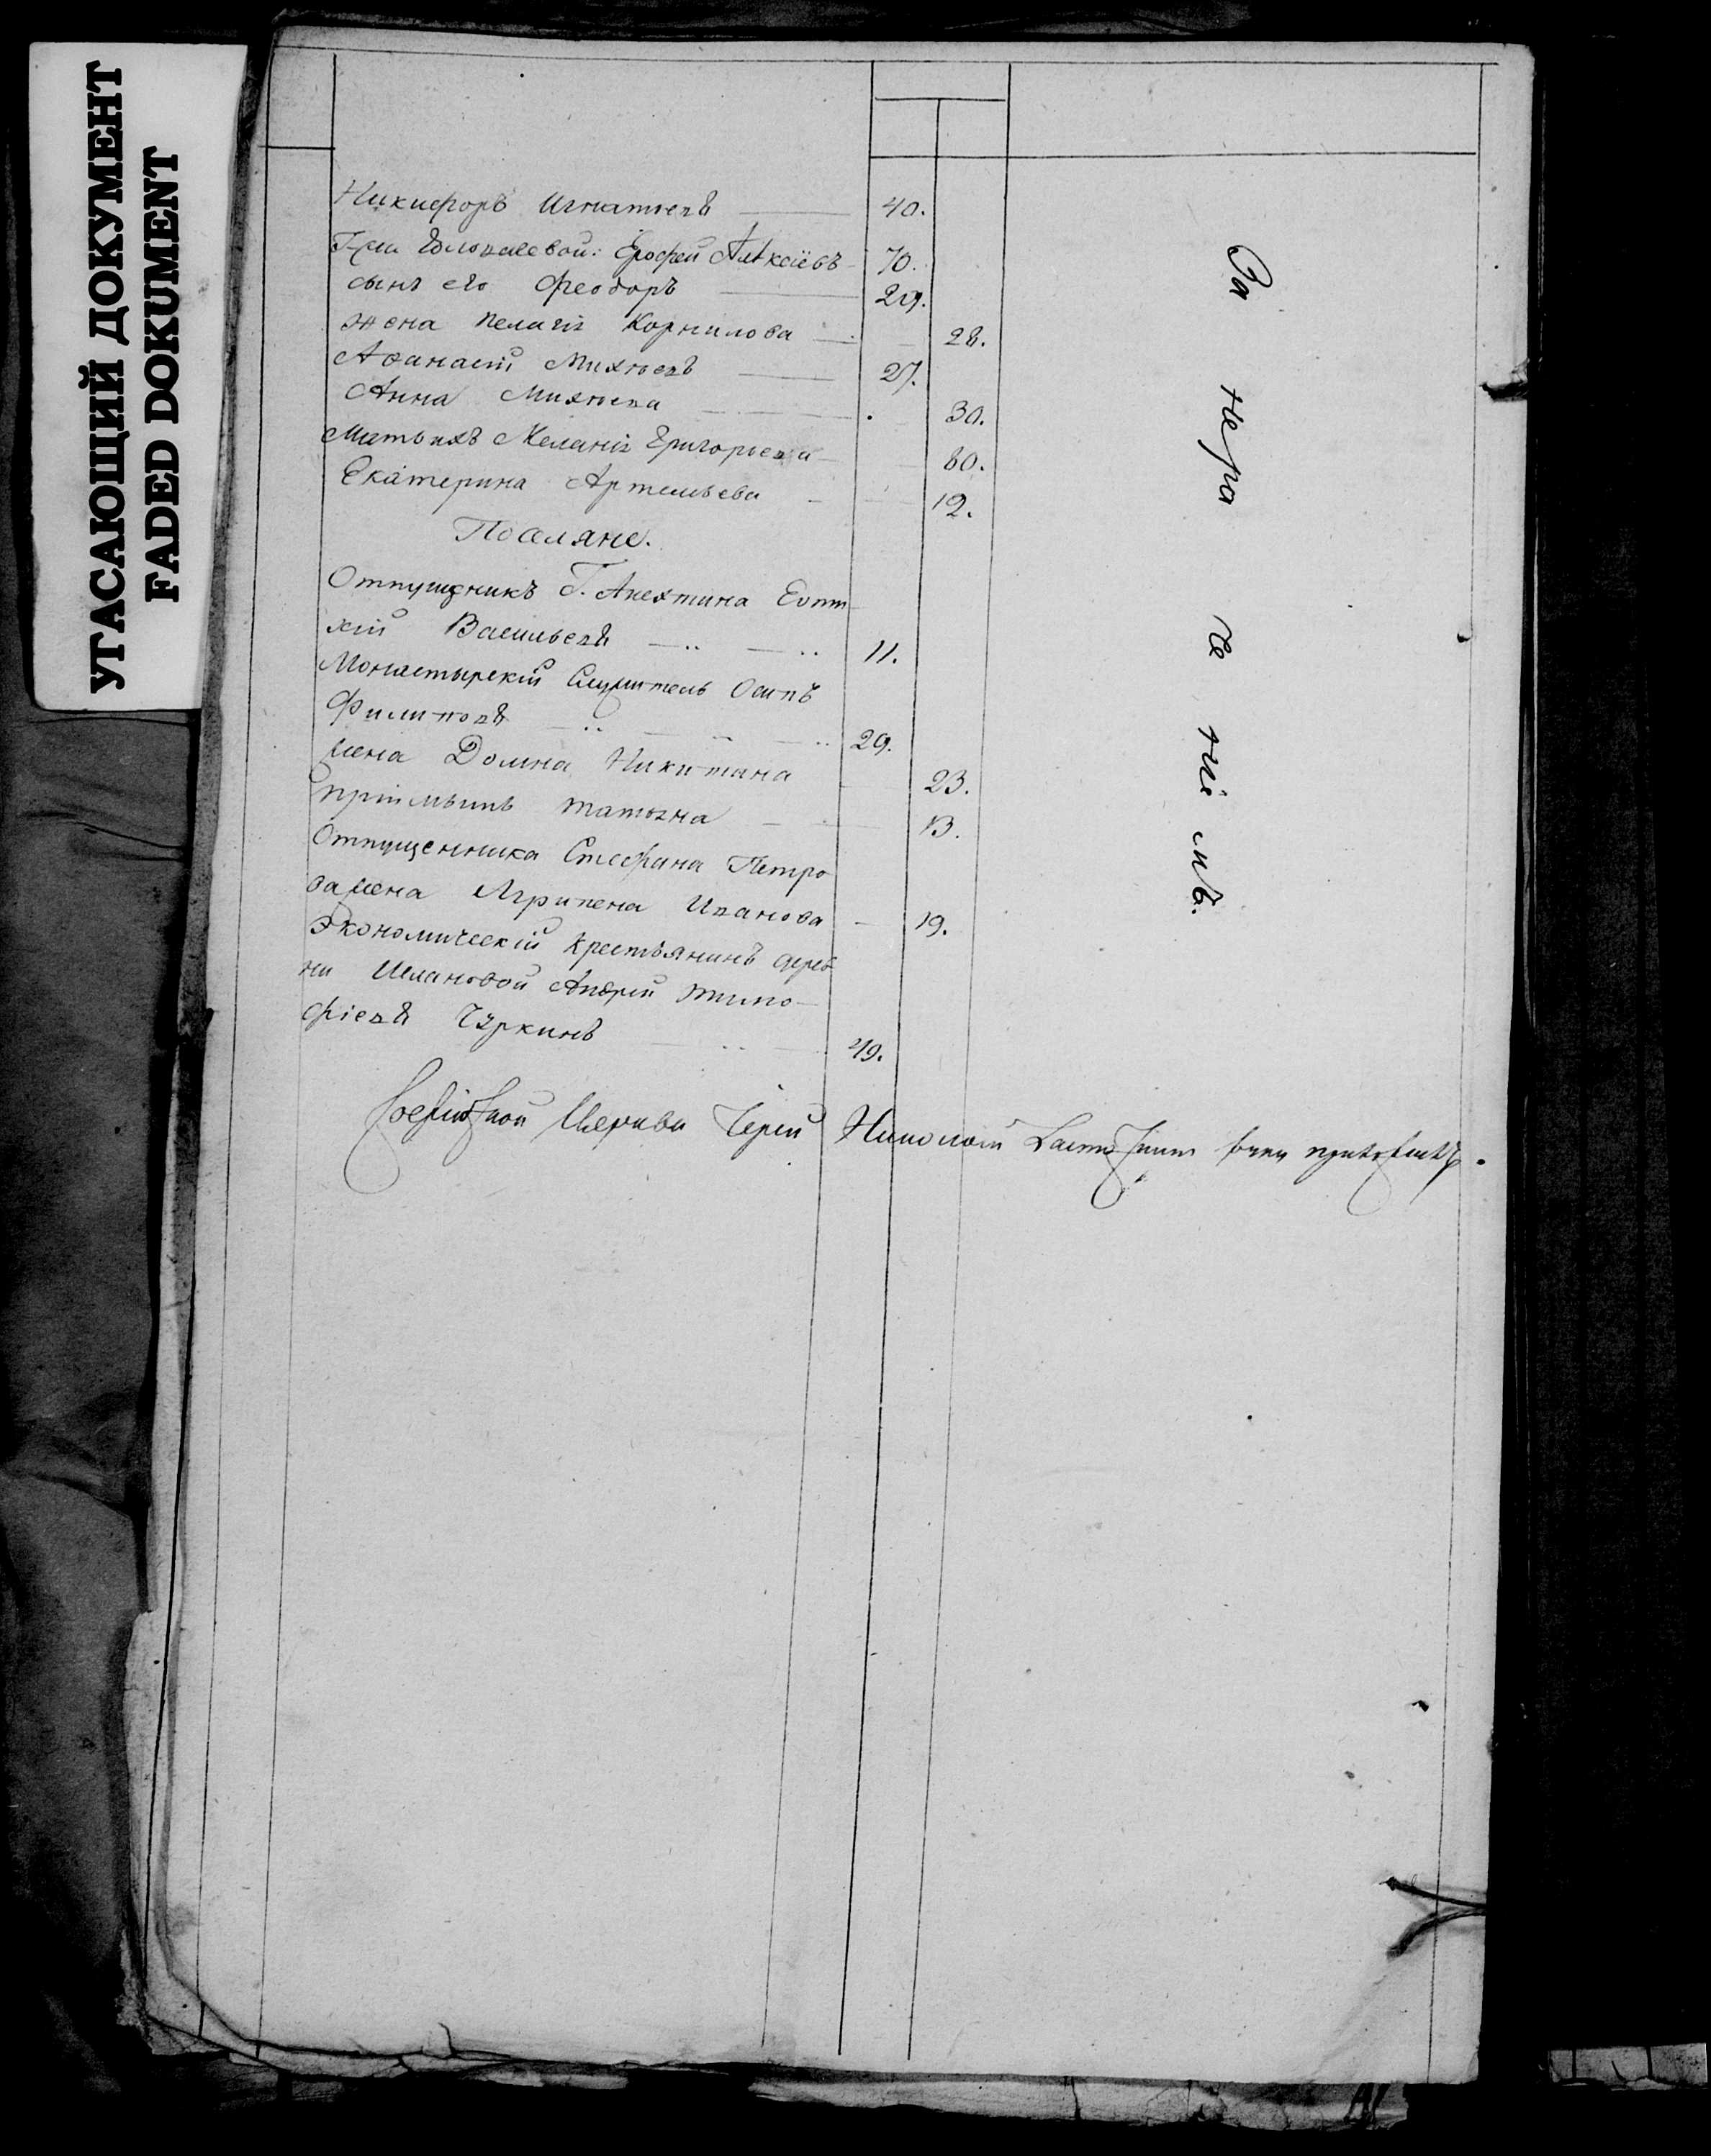 УГАСАЮЩИЙ ДОКУМЕНТ
FADED DOKUMENT
Никифоръ Игнатьевъ 40.
Ерофей Алексіевъ 70.
сынъ его Феодоръ 29.
жена Пелагія Корнилова 28.
Афанасій Михѣевъ 27.
Анна Михѣева 30.
Мать ихъ Меланія Григорьева 80.
Екатерина Артемьева 12.
Поселяне.
Отпущеникъ Г. Апехтина Евти
хій Васильевъ 11.
Монастырскій Служитель Осипъ
Филиповъ 29.
жена Домна Никитина 23.
пріимышъ Татьяна 13.
Отпущенника Стефана Петро
ва жена Агрипена Иванова 19.
Экономическій крестьянинъ дерев
ни Андрей Тимо
фіевъ Чуркинъ 49.
За нера че ніе мъ.
Церкви Іерей Николай руку приложилъ.